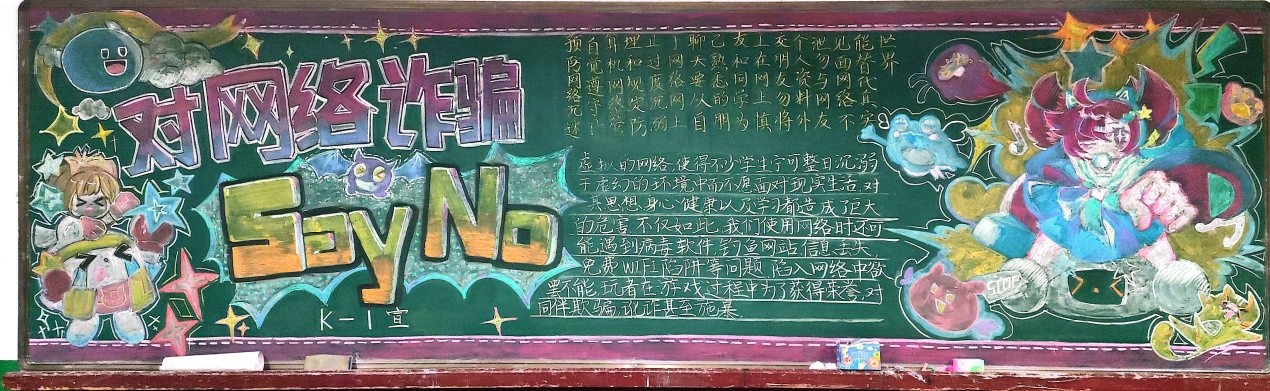 对网络诈骗
Say No
K-1宣
预防网络沉迷
自觉遵守计
算机网络管
理和规定防
止过度沉溺
于网络网上
聊天要从自
己熟悉的朋
友和同学为
主在网上慎
交朋友勿将
个人资料外
泄勿与网友
见面网络不
能替代真实
世界
虚拟的网络,使得不少学生宁可整日沉溺
于虚幻的环境中而不愿面对现实生活,对
其思想、身心健康以及学习都造成了巨大
的危害,不仅如此,我们使用网络时还可
能遇到病毒软件,钓鱼网站信息丢失,
免费WIFI陷阱等问题,陷入网络中欲
罢不能,玩者在游戏过程中为了获得荣誉,对
同伴欺骗,讹诈甚至施暴